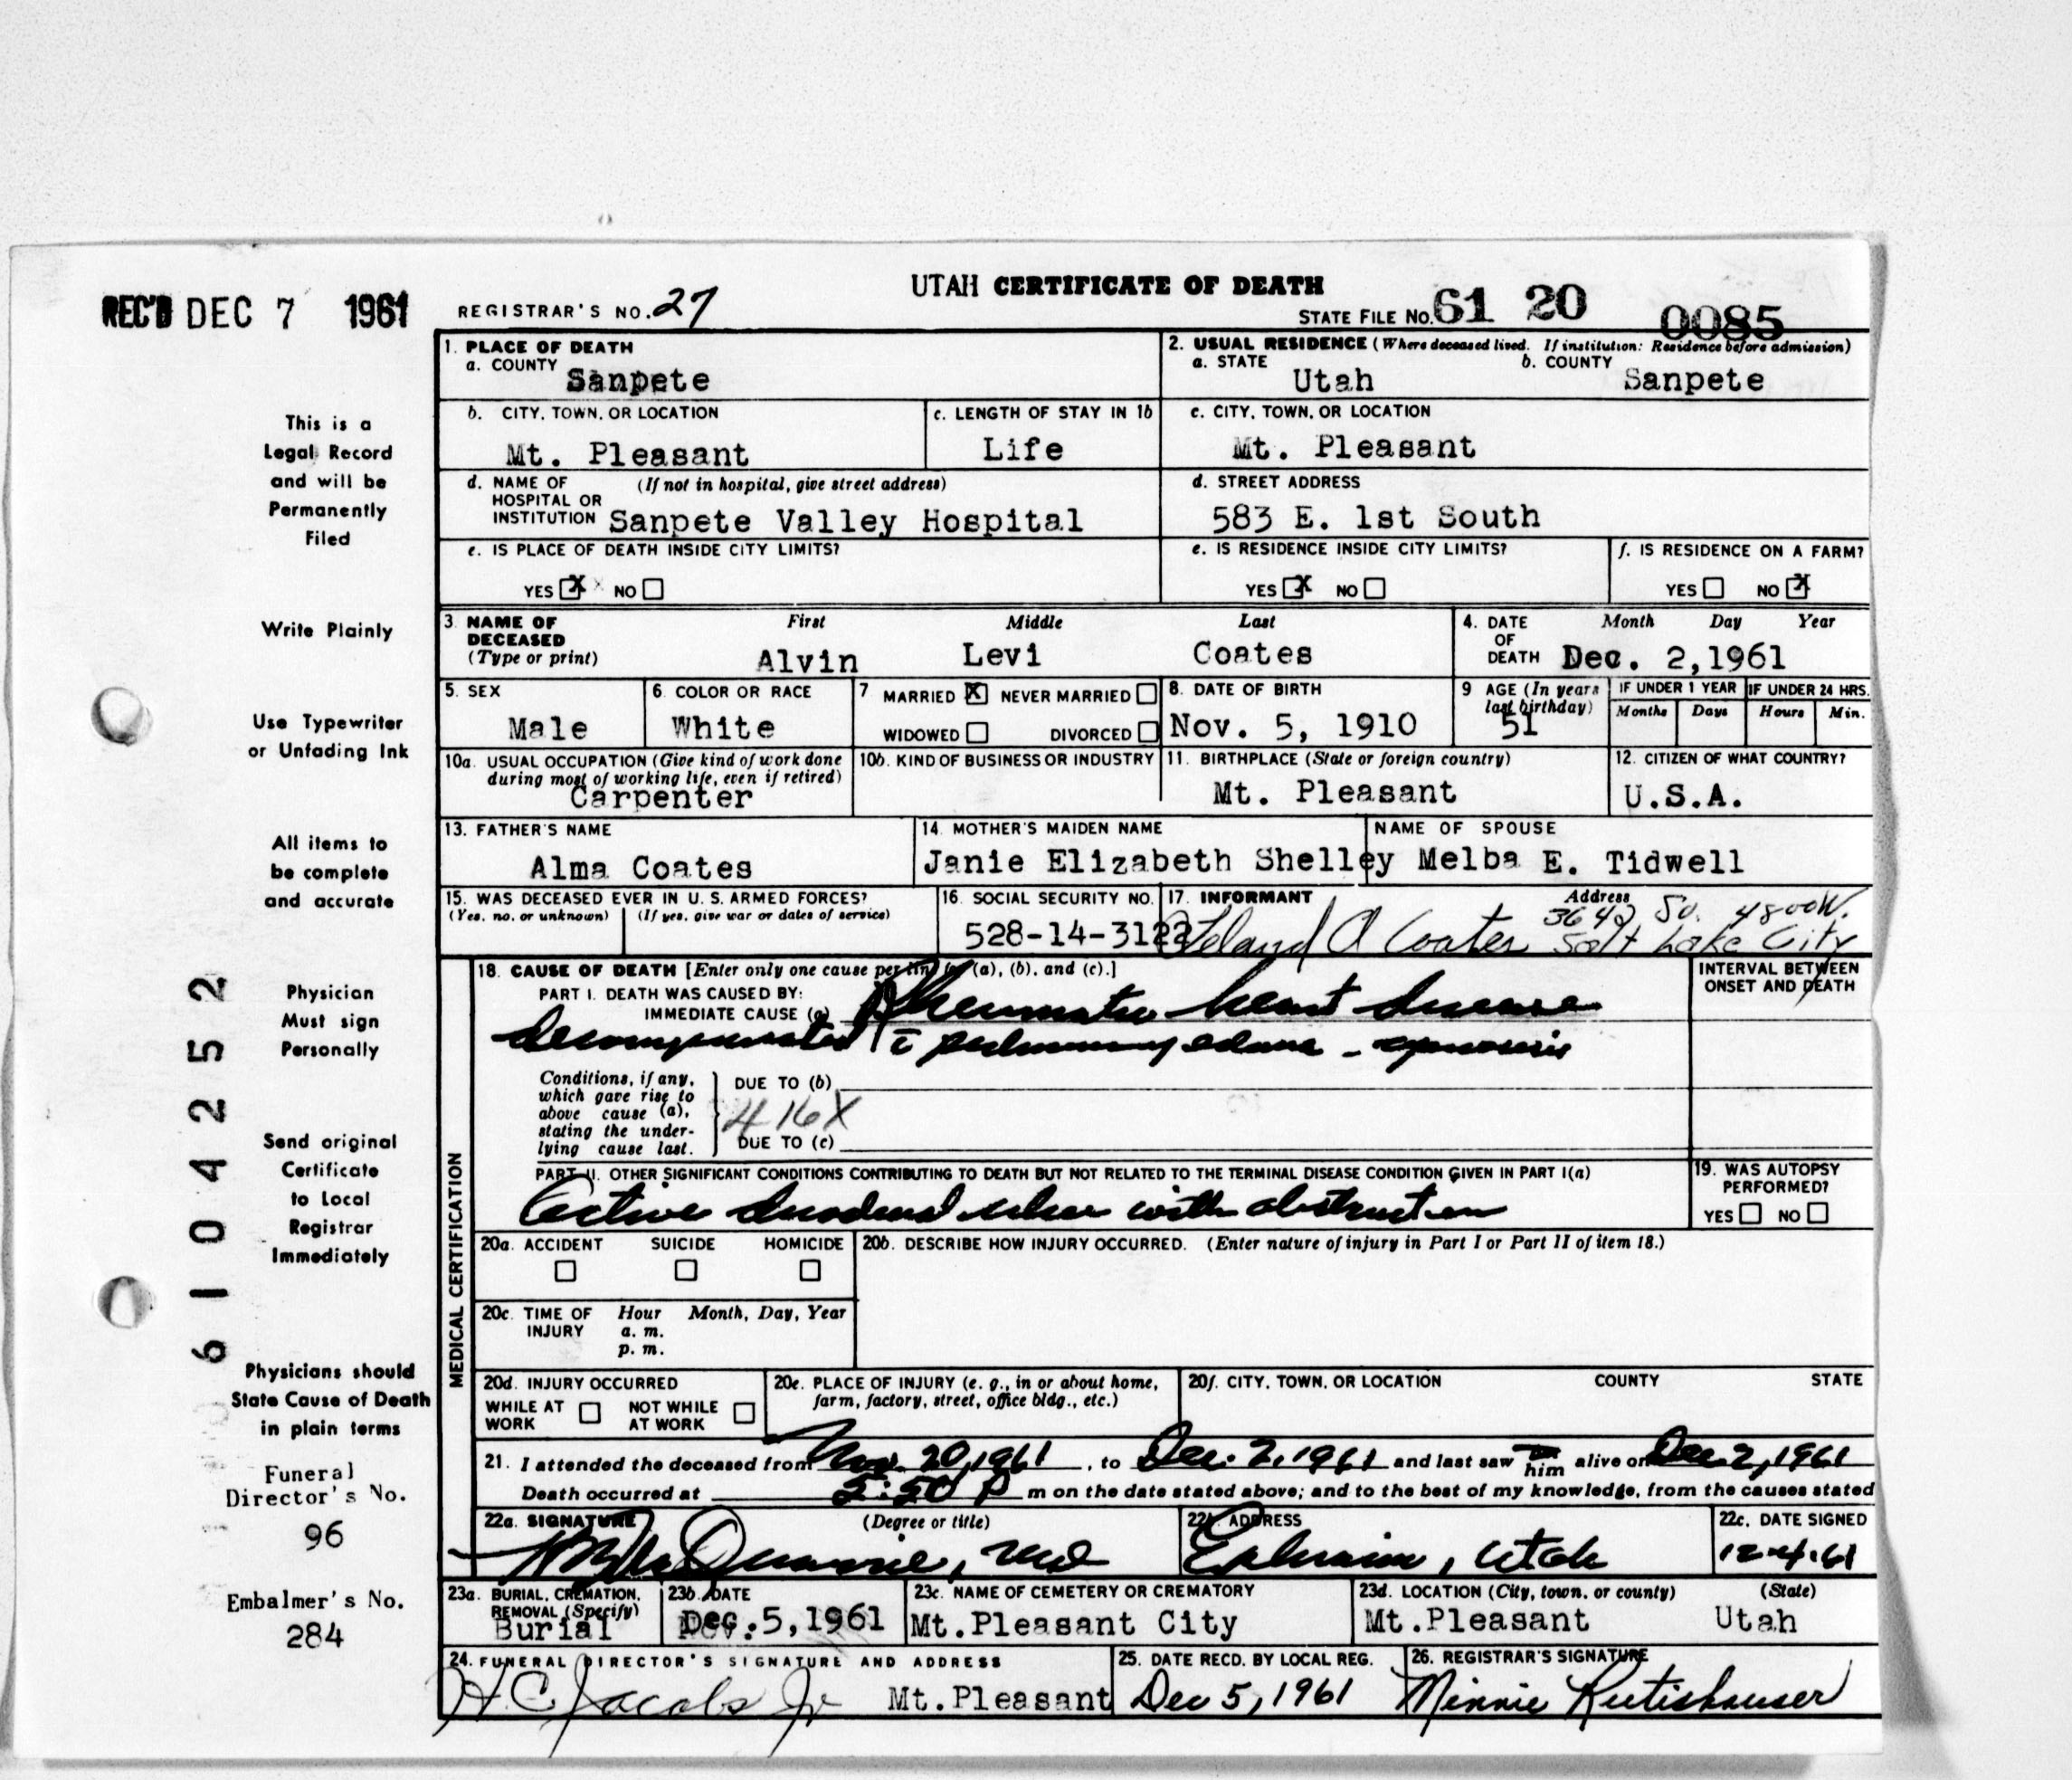 REC'D DEC 7 1961
UTAH CERTIFICATE OF DEATH
REGISTRAR'S NO. 27
STATE FILE NO. 61 20 0085
This is a
Legal Record
and will be
Permanently
Filed
Write Plainly
Use Typewriter
or Unfading Ink
All items to
be complete
and accurate
Physician
Must sign
Personally
Send original
Certificate
to Local
Registrar
Immediately
Physicians should
State Cause of Death
in plain terms
Funeral
Director's No.
96
Embalmer's No.
284
61 04252
1. PLACE OF DEATH
a. COUNTY Sanpete
2. USUAL RESIDENCE (Where deceased lived. If institution: Residence before admission)
a. STATE Utah b. COUNTY Sanpete
b. CITY, TOWN, OR LOCATION
Mt. Pleasant
c. LENGTH OF STAY IN 1b
Life
c. CITY, TOWN, OR LOCATION
Mt. Pleasant
d. NAME OF (If not in hospital, give street address)
HOSPITAL OR
INSTITUTION Sanpete Valley Hospital
d. STREET ADDRESS
583 E. 1st South
e. IS PLACE OF DEATH INSIDE CITY LIMITS?
YES X NO
e. IS RESIDENCE INSIDE CITY LIMITS?
YES X NO
f. IS RESIDENCE ON A FARM?
YES NO X
3. NAME OF DECEASED (Type or print)
First Middle Last
Alvin Levi Coates
4. DATE OF DEATH Month Day Year
Dec. 2,1961
5. SEX
Male
6. COLOR OR RACE
White
7 MARRIED X NEVER MARRIED
WIDOWED DIVORCED
8. DATE OF BIRTH
Nov. 5, 1910
9 AGE (In years
last birthday)
51
IF UNDER 1 YEAR
Months Days
IF UNDER 24 HRS.
Hours Min.
10a. USUAL OCCUPATION (Give kind of work done
during most of working life, even if retired)
Carpenter
10b. KIND OF BUSINESS OR INDUSTRY
11. BIRTHPLACE (State or foreign country)
Mt. Pleasant
12. CITIZEN OF WHAT COUNTRY?
U.S.A.
13. FATHER'S NAME
Alma Coates
14. MOTHER'S MAIDEN NAME
Janie Elizabeth Shelley
NAME OF SPOUSE
Melba E. Tidwell
15. WAS DECEASED EVER IN U. S. ARMED FORCES?
(Yes, no, or unknown) (If yes, give war or dates of service)
16. SOCIAL SECURITY NO.
528-14-3122
17. INFORMANT Address
Leland A Coates 3642 So. 4800W.
Salt Lake City
MEDICAL CERTIFICATION
18. CAUSE OF DEATH [Enter only one cause per line for (a), (b), and (c).]
INTERVAL BETWEEN
ONSET AND DEATH
PART I. DEATH WAS CAUSED BY:
IMMEDIATE CAUSE (a) Rheumatic heart disease
decompensated c̄ pulmonary edema -
Conditions, if any,
which gave rise to
above cause (a),
stating the under-
lying cause last.
DUE TO (b)
416X
DUE TO (c)
PART II. OTHER SIGNIFICANT CONDITIONS CONTRIBUTING TO DEATH BUT NOT RELATED TO THE TERMINAL DISEASE CONDITION GIVEN IN PART I(a)
Active duodenal ulcer with obstruction
19. WAS AUTOPSY
PERFORMED?
YES NO
20a. ACCIDENT SUICIDE HOMICIDE
20b. DESCRIBE HOW INJURY OCCURRED. (Enter nature of injury in Part I or Part II of item 18.)
20c. TIME OF INJURY Hour Month, Day, Year
a. m.
p. m.
20d. INJURY OCCURRED
WHILE AT WORK NOT WHILE AT WORK
20e. PLACE OF INJURY (e. g., in or about home,
farm, factory, street, office bldg., etc.)
20f. CITY, TOWN, OR LOCATION COUNTY STATE
21. I attended the deceased from Nov. 20,1961, to Dec. 2,1961 and last saw him alive on Dec. 2, 1961
Death occurred at 5:50 P m on the date stated above; and to the best of my knowledge, from the causes stated
22a. SIGNATURE (Degree or title)
McQuarrie, MD
22b. ADDRESS
Ephraim, Utah
22c. DATE SIGNED
12-4-61
23a. BURIAL, CREMATION,
REMOVAL (Specify)
Burial
23b. DATE
Dec.5,1961
23c. NAME OF CEMETERY OR CREMATORY
Mt.Pleasant City
23d. LOCATION (City, town, or county) (State)
Mt.Pleasant Utah
24. FUNERAL DIRECTOR'S SIGNATURE AND ADDRESS
H. C. Jacobs Jr Mt.Pleasant
25. DATE RECD. BY LOCAL REG.
Dec 5, 1961
26. REGISTRAR'S SIGNATURE
Minnie Rutishauser